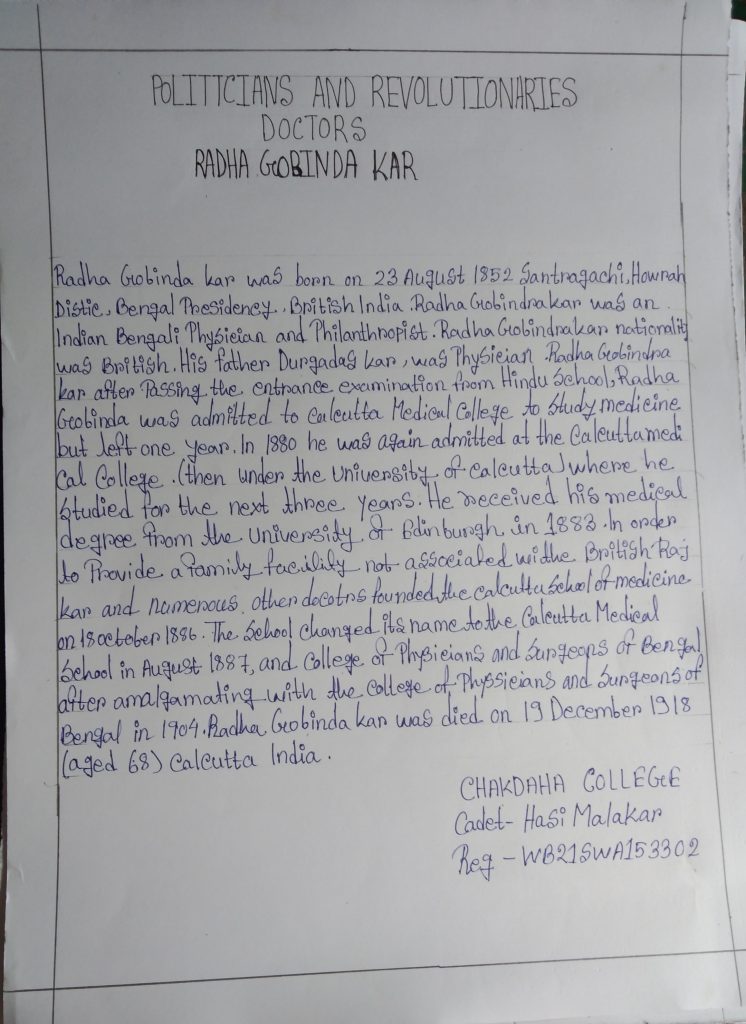 POLITTCIANS AND REVOLUTIONARIES
DOCTORS
RADHA GOBINDA KAR
Radha Gobinda kar was born on 23 August 1852 Santragachi, Howrah
Distic, Bengal Presidency, British India. Radha Gobindra kar was an
Indian Bengali Physieian and Philanthropist. Radha Gobindrakar nationality
was British. His father Durgadas kar, was Physieian. Radha Gobindra
kar after Passing the entrance examination from Hindu School, Radha
Gobinda was admitted to Calcutta Medical College to Study medicine
but left one year. In 1880 he was again admitted at the Calcutta medi
Cal College. (then under the University of calcutta) where he
Studied for the next three years. He received his medical
degree from the University of Edinburgh in 1883. In order
to Provide a family facility not associaled withe British Raj
kar and numerous other docotrs founded the calcutta School of medicine
on 18 october 1886. The School changed its name to the Calcutta Medical
School in August 1887, and College of Physieians and Surgeons of Bengal
after amalgamating with the College of Physsieians and Surgeons of
Bengal in 1904. Radha Gobinda kar was died on 19 December 1918
(aged 68) Calcutta India.
CHAKDAHA COLLEGE
Cadet- Hasi Malakar
Reg - WB21SWA153302